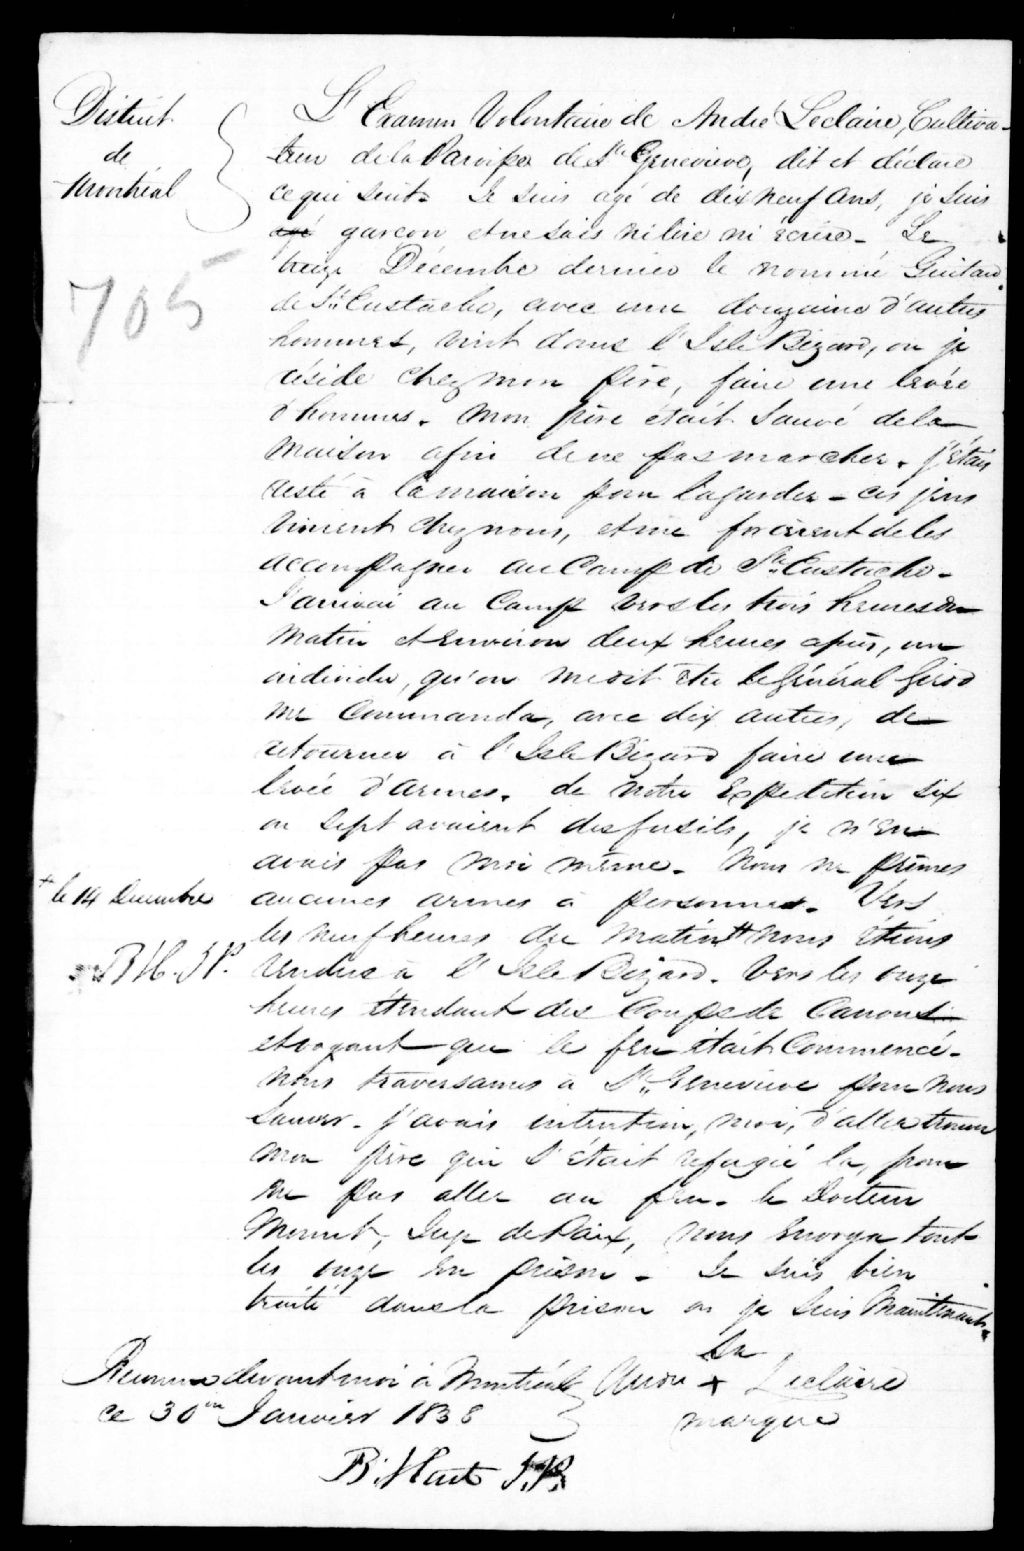 District
de
Montréal
705
L'Examen Volontaire de André Leclaire, Cultiva-
teur de la Paroisse de Ste Genevieve, dit et déclare
ce qui suit. Je suis agé de dix neuf ans, je suis
agé garcon et ne sais ni lire ni écrire - Le
treize Décembre dernier le nommé Guitard
de St Eustache, avec une douzaine d'autres
hommes, vint dans l'Isle Bizard, ou je
réside chez mon père, faire une levée
d'hommes. Mon père était sauvé de la
maison afin de ne pas marcher. j'étais
resté à la maison pour la garder - ces jens
vinrent chez nous, et me forcèrent de les
accompagner au Camp de St. Eustache -
J'arrivai au Camp vers les trois heures du
matin et environ deux heures après, un
individu, qu'on me dit être le Général Girod
me commanda, avec dix autres, de
retourner à l'Isle Bizard faire une
levée d'armes. de notre Expedition six
ou sept avaient des fusils, je n'en
avais pas moi même. Nous ne primes
aucunes armes à personnes. Vers
les neuf heures du matin + nous étions
+ le 14 Decembre
B H. J P.
rendus à l'Isle Bizard. Vers les onze
heures etendant des Coups de Canons
et voyant que le feu était Commencé -
nous traversames à Ste Genevieve pour nous
sauver - j'avais intention, moi, d'aller trouver
mon père qui s'était refugié la, pour
ne pas aller au feu. le Docteur
Juge de Paix, nous envoya tout
les onze en prison - Je suis bien
traité dans la prison ou je suis Maintenant.
Reconnu devant moi à Montréal
ce 30 Janvier 1838
sa
André + Leclaire
marque
B. Hart J.P.